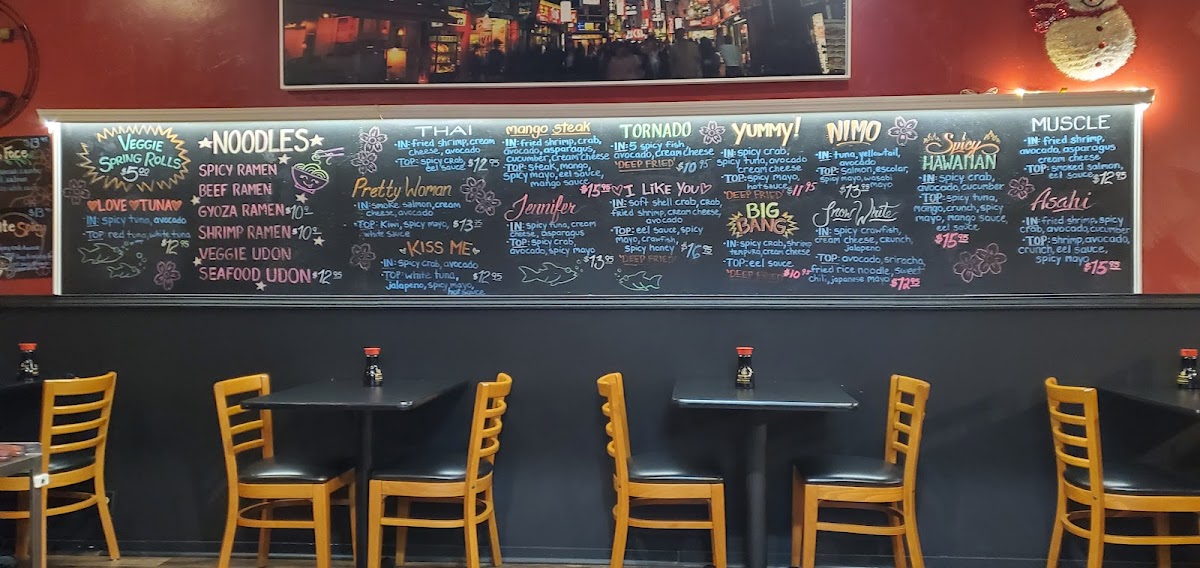 Face
$13.95
Spicy
VEGGIE
SPRING ROLLS
$5.00
LOVE TUNA
IN: spicy tuna, avocado
TOP: red tuna, white tuna
$12.95
NOODLES
SPICY RAMEN
BEEF RAMEN
GYOZA RAMEN $10.95
SHRIMP RAMEN $10.95
VEGGIE UDON
SEAFOOD UDON $12.95
THAI
IN: fried shrimp, cream
cheese, avocado
TOP: spicy crab,
eel sauce
$12.95
Pretty Woman
IN: smoke salmon, cream
cheese, avocado
TOP: Kiwi, spicy mayo,
white sauce
$13.95
KISS ME
IN: spicy crab, avocado
TOP: white tuna,
jalapeno, spicy mayo,
hot sauce
$12.95
mango steak
IN: fried shrimp, crab,
avocado, asparagus,
cucumber, cream cheese
TOP: steak, mango,
spicy mayo, eel sauce,
mango sauce
$15.95
Jennifer
IN: spicy tuna, cream
cheese, asparagus
TOP: spicy crab,
avocado, spicy mayo
$13.95
TORNADO
IN: 5 spicy fish,
avocado, cream cheese
DEEP FRIED
$10.95
I LIKE YOU
IN: soft shell crab, crab,
fried shrimp, cream cheese,
avocado
TOP: eel sauce, spicy
mayo, crawfish,
spicy honey
DEEP FRIED
$16.95
YUMMY!
IN: spicy crab,
spicy tuna, avocado
cream cheese
TOP: spicy mayo,
hot sauce
DEEP FRIED $11.95
BIG
BANG
IN: spicy crab, shrimp
tempura, cream cheese
TOP: eel sauce
DEEP FRIED $10.95
NIMO
IN: tuna, yellowtail,
avocado
TOP: salmon, escolar,
spicy mayo, wasabi
mayo
$13.95
Snow White
IN: spicy crawfish,
cream cheese, crunch,
jalapeno
TOP: avocado, sriracha,
fried rice noodle, sweet
chili, japanese mayo
$12.95
Spicy
HAWAIIAN
IN: spicy crab,
avocado, cucumber
TOP: spicy tuna,
mango, crunch, spicy
mayo, mango sauce,
eel sauce
$15.95
MUSCLE
IN: fried shrimp,
avocado, asparagus
cream cheese
TOP: smoked salmon,
eel sauce
$12.95
Asahi
IN: fried shrimp, spicy
crab, avocado, cucumber
TOP: shrimp, avocado,
crunch, eel sauce,
spicy mayo
$15.95